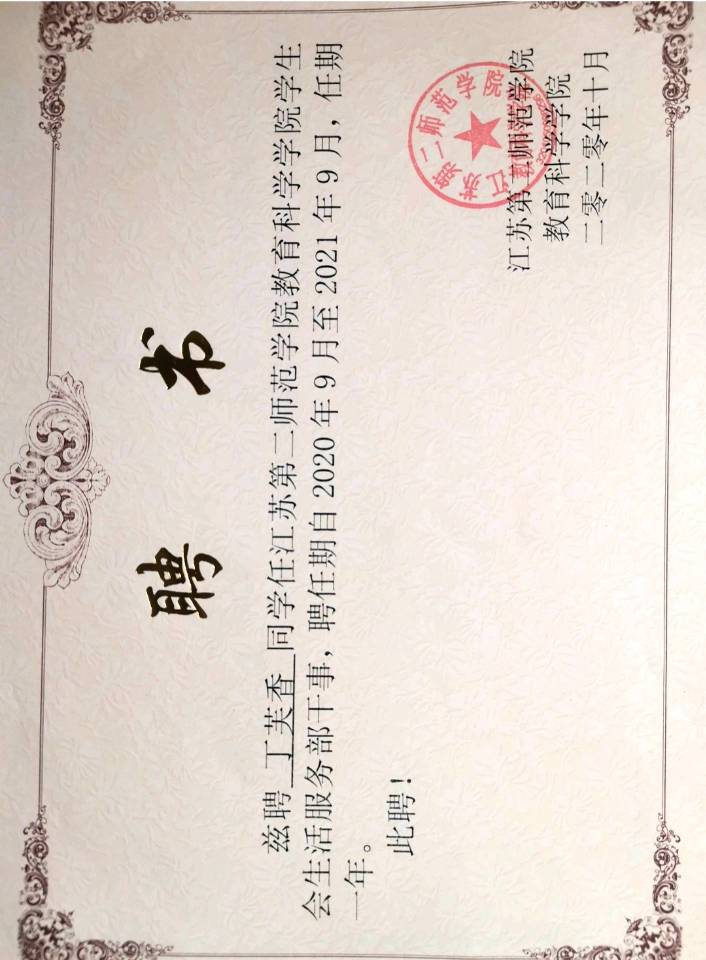 聘 书
兹聘 丁芙香 同学任江苏第二师范学院教育科学学院学生
会生活服务部干事，聘任期自 2020 年 9 月至 2021 年 9 月，任期
一年。
此聘！
江苏第二师范学院
教育科学学院
二零二零年十月
江苏第二师范学院